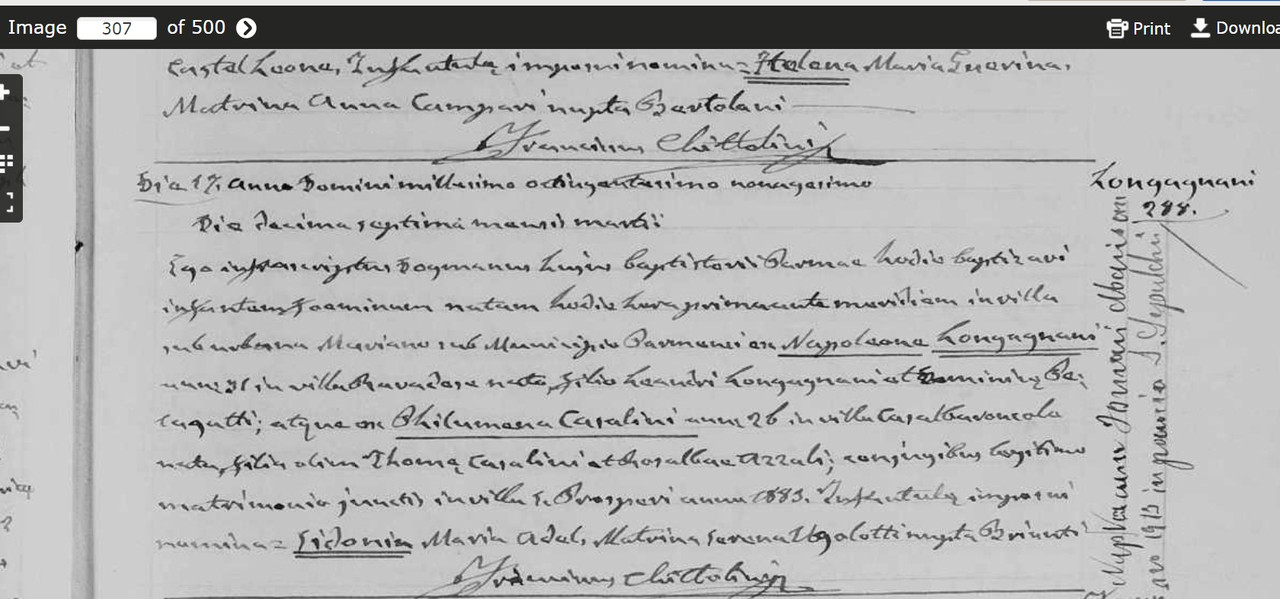 Image 307 of 500 Print Downloa
Castel Leone, Infantulę imposui nomina = Helena Maria Guerina.
Matrina Anna Campari nupta Bertolani
Franciscus Chittolini
Die 17. Anno Domini millesimo octingentesimo nonagesimo
Longagnani
288.
Die decima septima mensis martii
Ego infrascriptus Dogmanus hujus baptisterii Parmae hodie baptizavi
infantem foeminam natam hodie hora prima ante meridiem in villa
suburbana Mariano sub Municipio Parmensi ex Napoleone Longagnani
ann: 31 in villa Bavadese nato, filio Leandri Longagnani et Dominicę Pe:
lagatti; atque ex Philumena Casalini ann: 26 in villa Casalbaroncolo
nata, filia olim Thomę Casalini et Rosalbae Azzali; conjugibus legitimo
matrimonio junctis in villa S. Prosperi anno 1883. Infantulę imposui
nomina = Sidonia Maria Adel. Matrina Serena Ugolotti nupta
Franciscus Chittolini
nupta Ioanni
1913 in paroecia S. Sepulchri